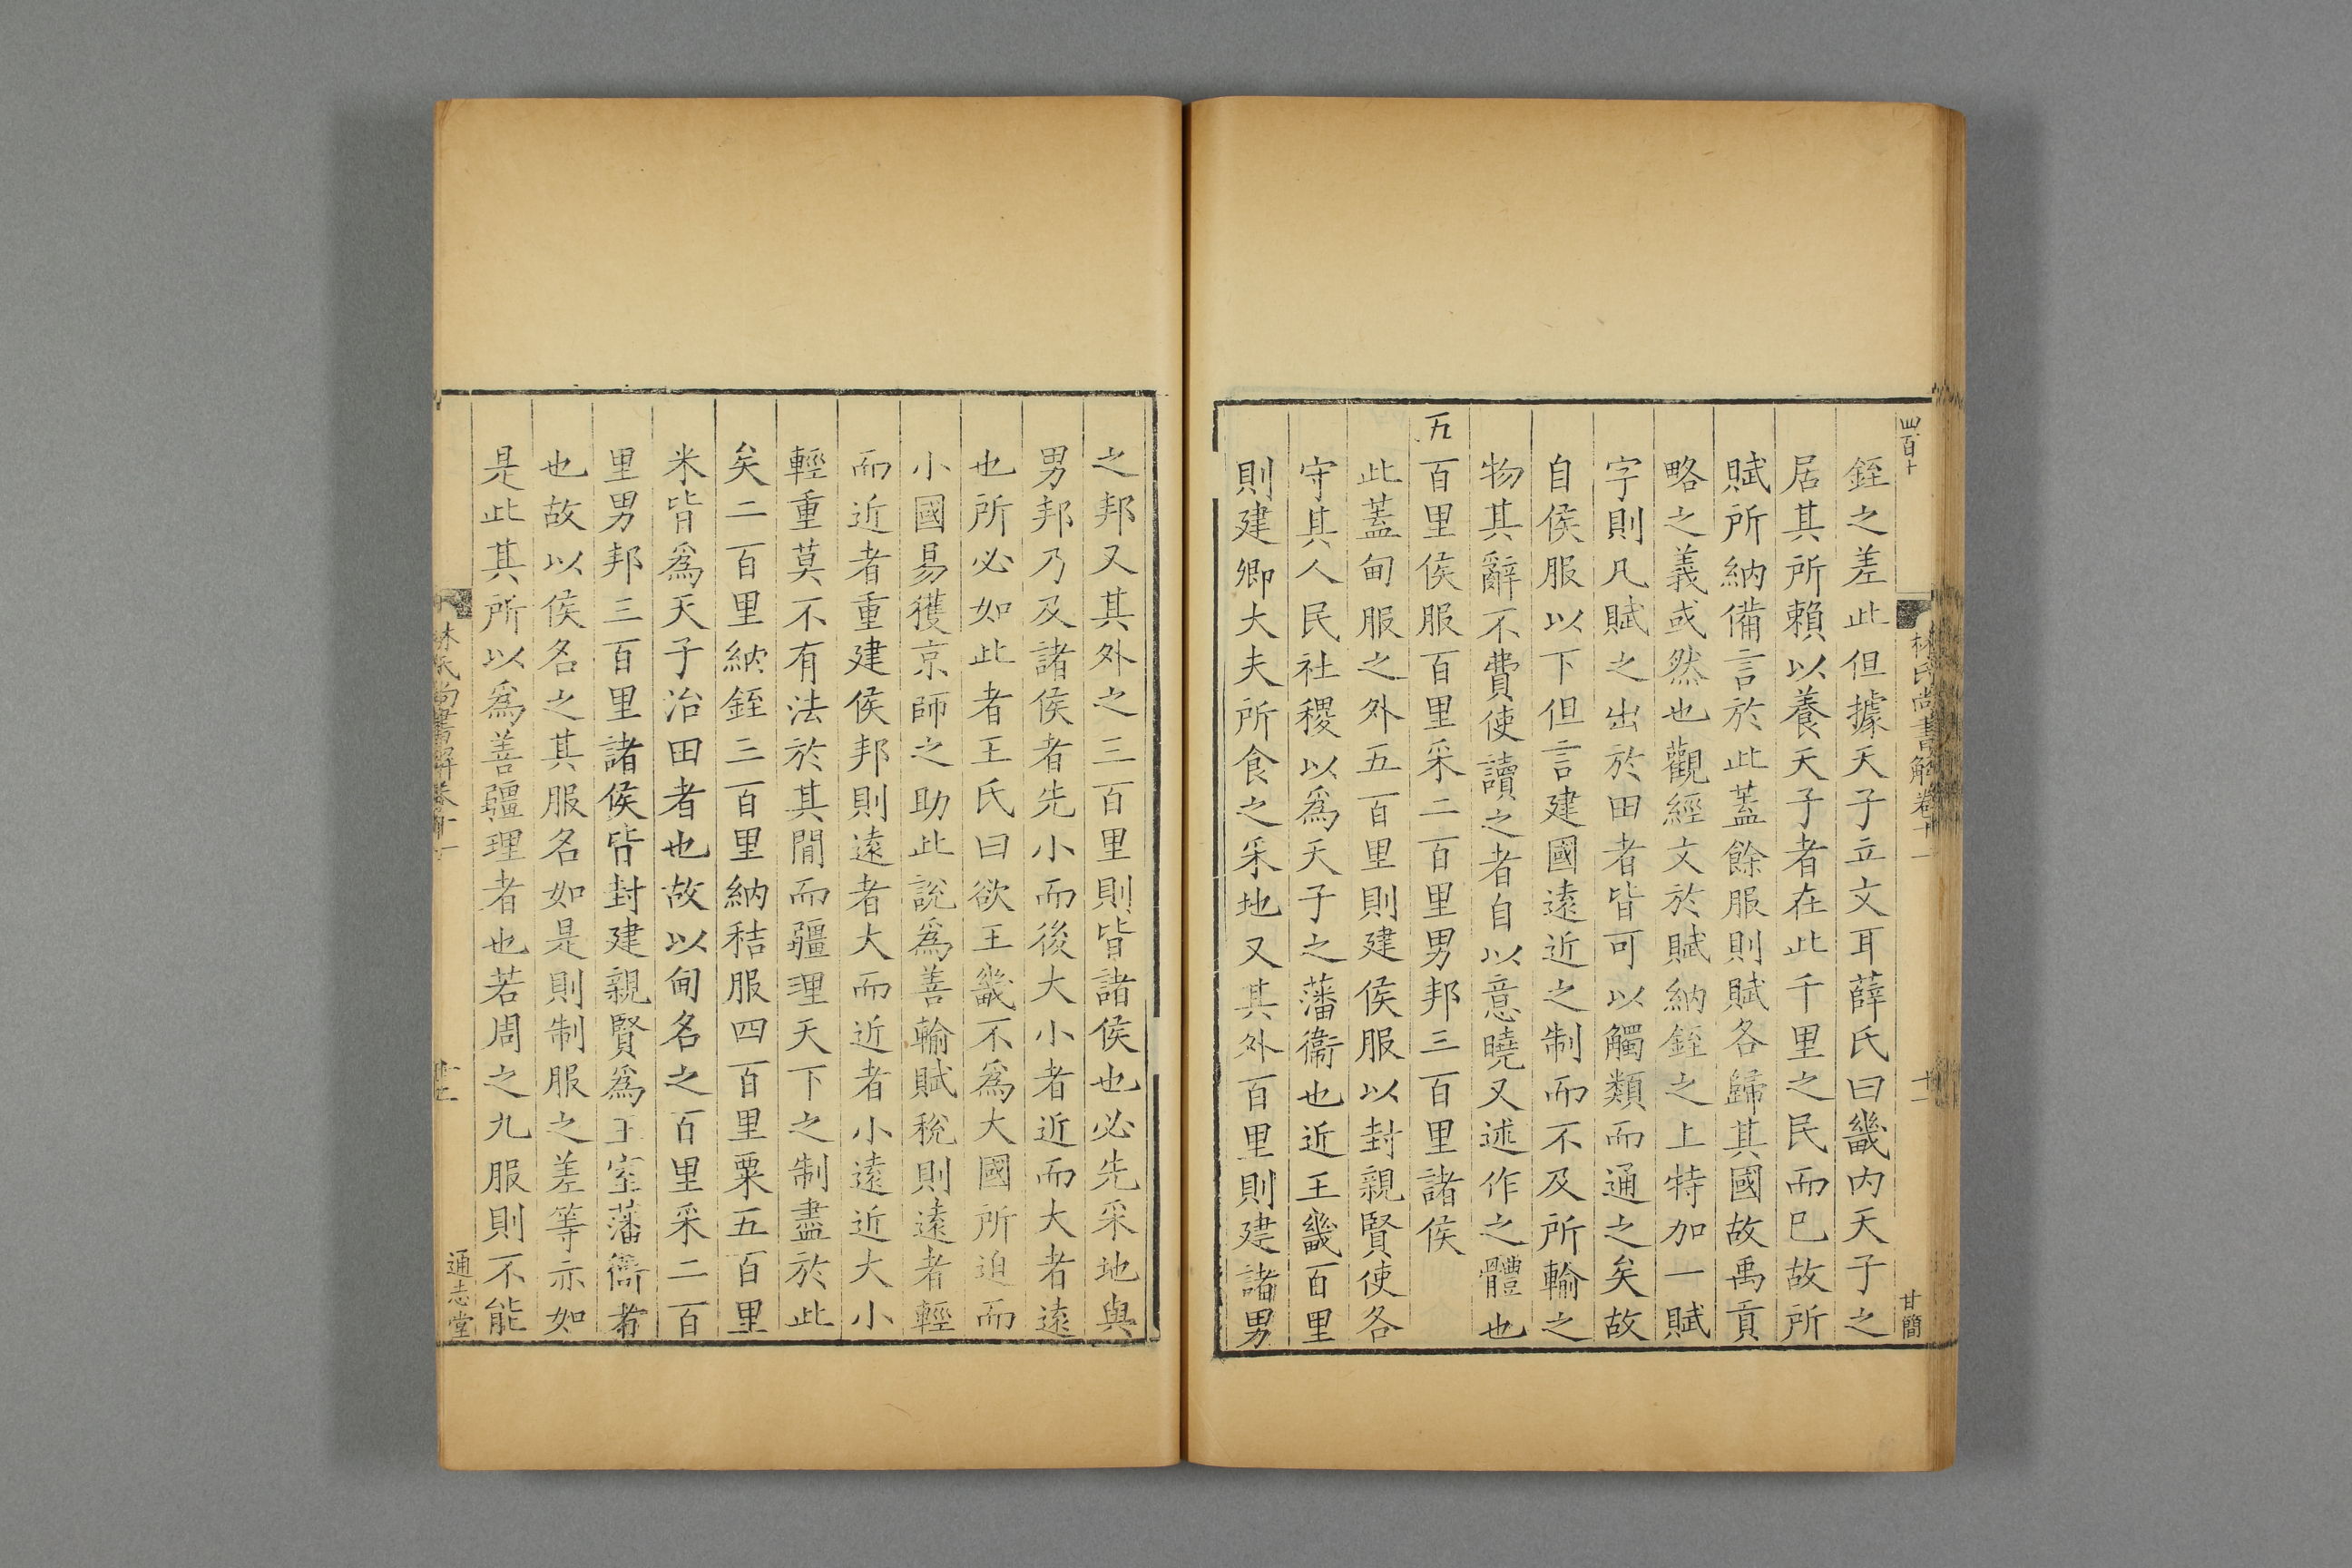 四百十
林氏尚書解卷十一
甘簡
銍之差此但據天子立文耳薛氏曰畿内天子之
居其所賴以養天子者在此千里之民而已故所
賦所納備言於此蓋餘服則賦各歸其國故禹貢
略之義或然也觀經文於賦納銍之上特加一賦
字則凡賦之出於田者皆可以觸類而通之矣故
自侯服以下但言建國遠近之制而不及所輸之
物其辭不費使讀之者自以意曉又述作之體也
五百里侯服百里采二百里男邦三百里諸侯
此蓋甸服之外五百里則建侯服以封親賢使各
守其人民社稷以爲天子之藩衞也近王畿百里
則建卿大夫所食之采地又其外百里則建諸男
之邦又其外之三百里則皆諸侯也必先采地與
男邦乃及諸侯者先小而後大小者近而大者遠
也所必如此者王氏曰欲王畿不爲大國所迫而
小國易獲京師之助此說爲善輸賦稅則遠者輕
而近者重建侯邦則遠者大而近者小遠近大小
輕重莫不有法於其間而疆理天下之制盡於此
矣二百里納銍三百里納秸服四百里粟五百里
米皆爲天子治田者也故以甸名之百里采二百
里男邦三百里諸侯皆封建親賢爲王室藩衞者
也故以侯名之其服名如是則制服之差等亦如
是此其所以爲善疆理者也若周之九服則不能
林氏尚書解卷十一
通志堂